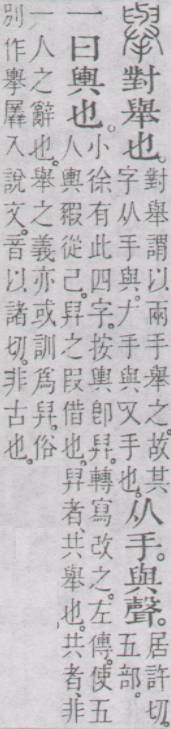 舉 對舉也。對舉謂以兩手舉之。故其字从手與。ナ手與又手也。从手。與聲。居許切。五部。
一曰輿也。小徐有此四字。按輿卽舁。轉寫改之。左傳。使五人輿猳從己。舁之叚借也。舁者、共舉也。共者、非
一人之辭也。舉之義亦或訓爲舁。俗別作擧羼入說文。音以諸切。非古也。